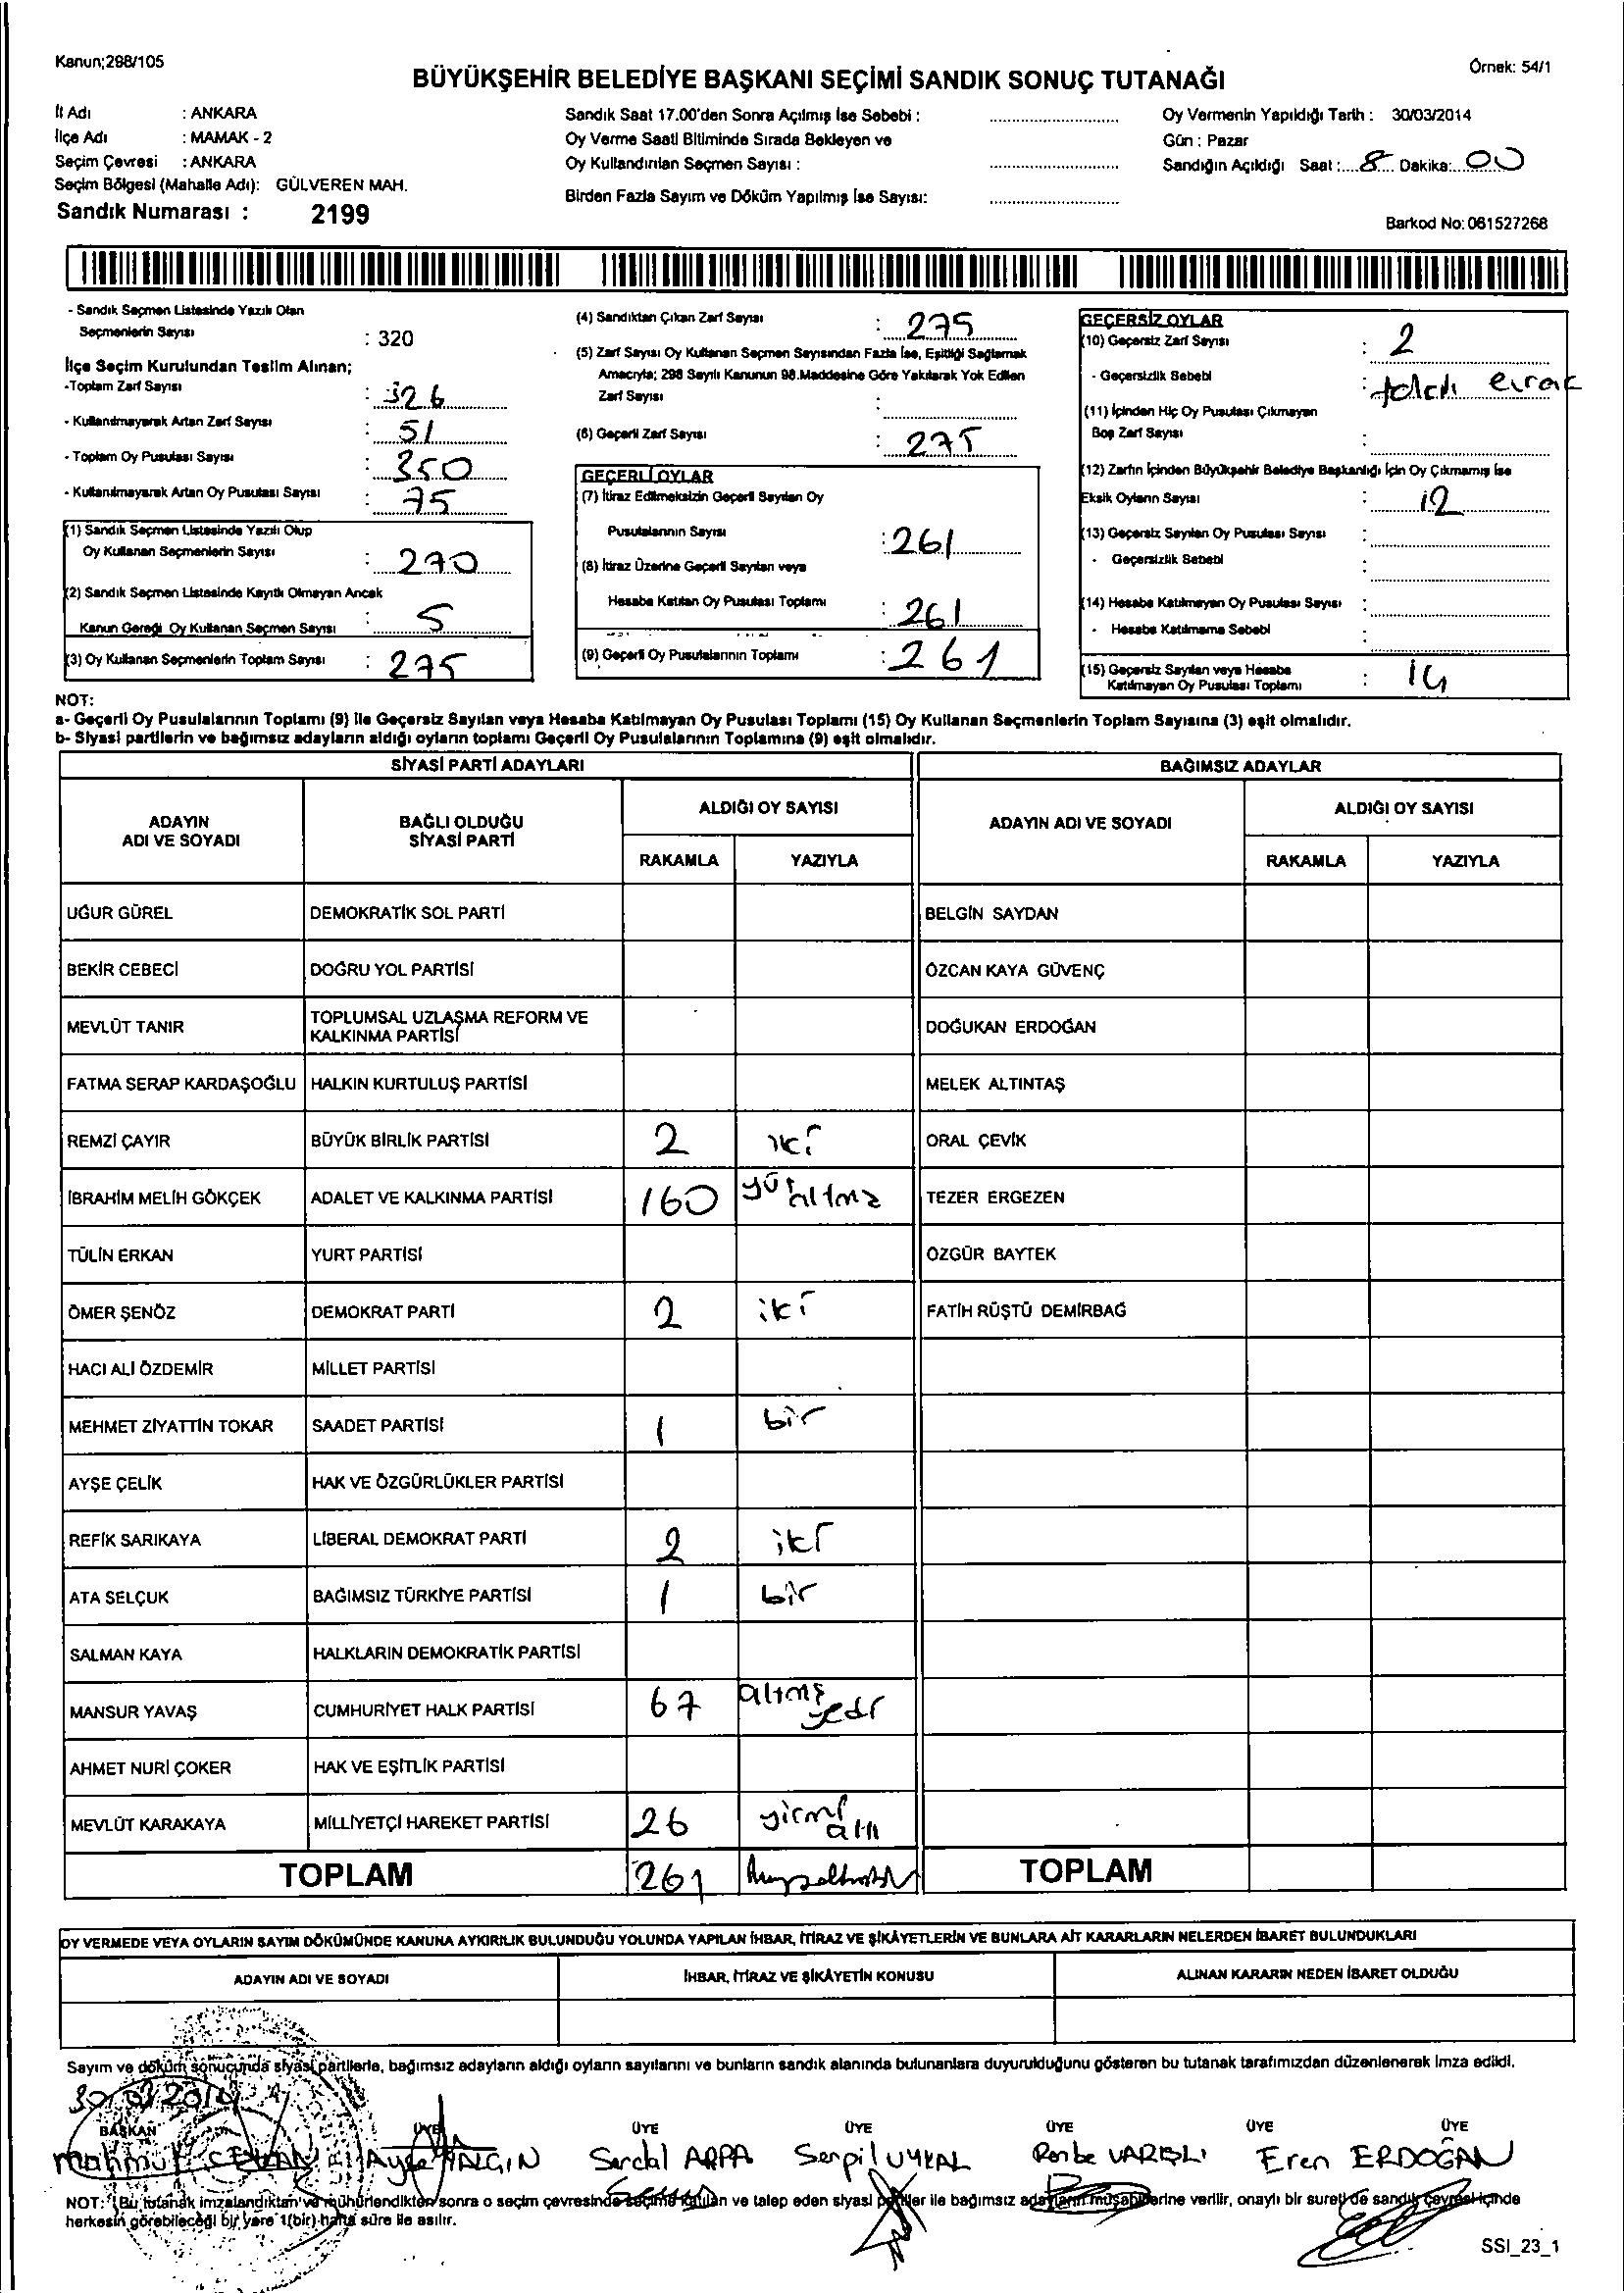 Kanun;298/105
Örnek: 54/1
BÜYÜKŞEHİR BELEDİYE BAŞKANI SEÇİMİ SANDIK SONUÇ TUTANAĞI
İl Adı : ANKARA
İlçe Adı : MAMAK - 2
Seçim Çevresi : ANKARA
Seçim Bölgesi (Mahalle Adı): GÜLVEREN MAH.
Sandık Numarası : 2199
Sandık Saat 17.00'den Sonra Açılmış İse Sebebi :
Oy Verme Saati Bitiminde Sırada Bekleyen ve
Oy Kullandırılan Seçmen Sayısı :
Birden Fazla Sayım ve Döküm Yapılmış İse Sayısı:
Oy Vermenin Yapıldığı Tarih : 30/03/2014
Gün : Pazar
Sandığın Açıldığı Saat : 8 Dakika: 00
Barkod No: 061527268
- Sandık Seçmen Listesinde Yazılı Olan
Seçmenlerin Sayısı : 320
İlçe Seçim Kurulundan Teslim Alınan;
-Toplam Zarf Sayısı : 326
- Kullanılmayarak Artan Zarf Sayısı : 51
- Toplam Oy Pusulası Sayısı : 350
- Kullanılmayarak Artan Oy Pusulası Sayısı : 75
(1) Sandık Seçmen Listesinde Yazılı Olup
Oy Kullanan Seçmenlerin Sayısı : 270
(2) Sandık Seçmen Listesinde Kayıtlı Olmayan Ancak
Kanun Gereği Oy Kullanan Seçmen Sayısı : 5
(3) Oy Kullanan Seçmenlerin Toplam Sayısı : 275
(4) Sandıktan Çıkan Zarf Sayısı : 275
(5) Zarf Sayısı Oy Kullanan Seçmen Sayısından Fazla İse, Eşitliği Sağlamak
Amacıyla; 298 Sayılı Kanunun 98.Maddesine Göre Yakılarak Yok Edilen
Zarf Sayısı :
(6) Geçerli Zarf Sayısı : 275
GEÇERLİ OYLAR
(7) İtiraz Edilmeksizin Geçerli Sayılan Oy
Pusulalarının Sayısı : 261
(8) İtiraz Üzerine Geçerli Sayılan veya
Hesaba Katılan Oy Pusulası Toplamı : 261
(9) Geçerli Oy Pusulalarının Toplamı : 261
GEÇERSİZ OYLAR
(10) Geçersiz Zarf Sayısı : 2
- Geçersizlik Sebebi : evrak
(11) İçinden Hiç Oy Pusulası Çıkmayan
Boş Zarf Sayısı :
(12) Zarfın İçinden Büyükşehir Belediye Başkanlığı İçin Oy Çıkmamış İse
Eksik Oyların Sayısı : 12
(13) Geçersiz Sayılan Oy Pusulası Sayısı :
- Geçersizlik Sebebi :
(14) Hesaba Katılmayan Oy Pusulası Sayısı :
- Hesaba Katılmama Sebebi :
(15) Geçersiz Sayılan veya Hesaba
Katılmayan Oy Pusulası Toplamı : 14
NOT:
a- Geçerli Oy Pusulalarının Toplamı (9) ile Geçersiz Sayılan veya Hesaba Katılmayan Oy Pusulası Toplamı (15) Oy Kullanan Seçmenlerin Toplam Sayısına (3) eşit olmalıdır.
b- Siyasi partilerin ve bağımsız adayların aldığı oyların toplamı Geçerli Oy Pusulalarının Toplamına (9) eşit olmalıdır.
SİYASİ PARTİ ADAYLARI BAĞIMSIZ ADAYLAR
ADAYIN ADI VE SOYADI BAĞLI OLDUĞU SİYASİ PARTİ ALDIĞI OY SAYISI ADAYIN ADI VE SOYADI ALDIĞI OY SAYISI
RAKAMLA YAZIYLA RAKAMLA YAZIYLA
UĞUR GÜREL DEMOKRATİK SOL PARTİ BELGİN SAYDAN
BEKİR CEBECİ DOĞRU YOL PARTİSİ ÖZCAN KAYA GÜVENÇ
MEVLÜT TANIR TOPLUMSAL UZLAŞMA REFORM VE KALKINMA PARTİSİ DOĞUKAN ERDOĞAN
FATMA SERAP KARDAŞOĞLU HALKIN KURTULUŞ PARTİSİ MELEK ALTINTAŞ
REMZİ ÇAYIR BÜYÜK BİRLİK PARTİSİ 2 iki ORAL ÇEVİK
İBRAHİM MELİH GÖKÇEK ADALET VE KALKINMA PARTİSİ 160 yüz altmış TEZER ERGEZEN
TÜLİN ERKAN YURT PARTİSİ ÖZGÜR BAYTEK
ÖMER ŞENÖZ DEMOKRAT PARTİ 2 iki FATİH RÜŞTÜ DEMİRBAĞ
HACI ALİ ÖZDEMİR MİLLET PARTİSİ
MEHMET ZİYATTİN TOKAR SAADET PARTİSİ 1 bir
AYŞE ÇELİK HAK VE ÖZGÜRLÜKLER PARTİSİ
REFİK SARIKAYA LİBERAL DEMOKRAT PARTİ 2 iki
ATA SELÇUK BAĞIMSIZ TÜRKİYE PARTİSİ 1 bir
SALMAN KAYA HALKLARIN DEMOKRATİK PARTİSİ
MANSUR YAVAŞ CUMHURİYET HALK PARTİSİ 67 altmış yedi
AHMET NURİ ÇOKER HAK VE EŞİTLİK PARTİSİ
MEVLÜT KARAKAYA MİLLİYETÇİ HAREKET PARTİSİ 26 yirmi altı
TOPLAM 261 TOPLAM
OY VERMEDE VEYA OYLARIN SAYIM DÖKÜMÜNDE KANUNA AYKIRILIK BULUNDUĞU YOLUNDA YAPILAN İHBAR, İTİRAZ VE ŞİKÂYETLERİN VE BUNLARA AİT KARARLARIN NELERDEN İBARET BULUNDUKLARI
ADAYIN ADI VE SOYADI İHBAR, İTİRAZ VE ŞİKÂYETİN KONUSU ALINAN KARARIN NEDEN İBARET OLDUĞU
Sayım ve döküm sonucunda siyasi partilerle, bağımsız adayların aldığı oyların sayılarını ve bunların sandık alanında bulunanlara duyurulduğunu gösteren bu tutanak tarafımızdan düzenlenerek imza edildi.
30/03/2014
BAŞKAN ÜYE ÜYE ÜYE ÜYE ÜYE ÜYE
Mahmut Ayşe YALGIN Serdal ARPA Serpil UYKAL VARIŞLI Eren ERDOĞAN
NOT: (Bu tutanak imzalandıktan ve mühürlendikten sonra o seçim çevresinde seçime katılan ve talep eden siyasi partiler ile bağımsız adayların müşahitlerine verilir, onaylı bir sureti de sandık çevresi içinde
herkesin görebileceği bir yere 1(bir) hafta süre ile asılır.
SSI_23_1